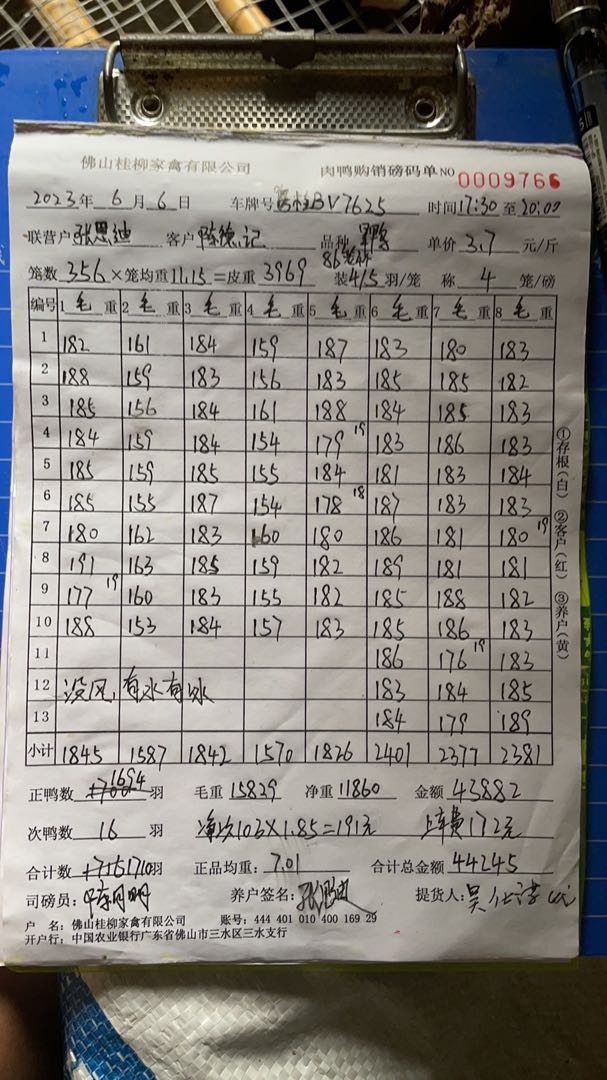 佛山桂柳家禽有限公司 肉鸭购销磅码单 NO 0009766
2023年 6月 6日 车牌号 BV7625 时间17:30至20:00
联营户 张思迪 客户 陈德记 品种 单价 3.7 元/斤
笼数 356 ×笼均重 11.15 =皮重 3969 装4/5 羽/笼 称 4 笼/磅
编号 1 毛 重 2 毛 重 3 毛 重 4 毛 重 5 毛 重 6 毛 重 7 毛 重 8 毛 重
1 182 161 184 159 187 183 180 183
2 188 159 183 156 183 185 185 182
3 185 156 184 161 188 184 185 183
4 184 159 184 154 179 19 183 186 183
5 185 159 185 155 184 181 183 184
6 185 155 187 154 178 18 187 183 183
7 180 162 183 160 180 186 181 180 19
8 191 163 185 159 182 189 181 181
9 177 19 160 183 155 182 185 188 182
10 188 153 184 157 183 185 186 183
11 186 176 19 183
12 没风,有水有冰 183 184 185
13 184 179 189
小计 1845 1587 1842 1570 1826 2401 2377 2381
正鸭数 1694 羽 毛重 15829 净重 11860 金额 43882
次鸭数 16 羽 103×1.85=191元 上车费172元
合计数 1710 羽 正品均重: 7.01 合计总金额 44245
司磅员: 养户签名: 提货人: 吴
户 名: 佛山桂柳家禽有限公司 账号: 444 401 010 400 169 29
开户行: 中国农业银行广东省佛山市三水区三水支行
①存根(白) ②客户(红) ③养户(黄)